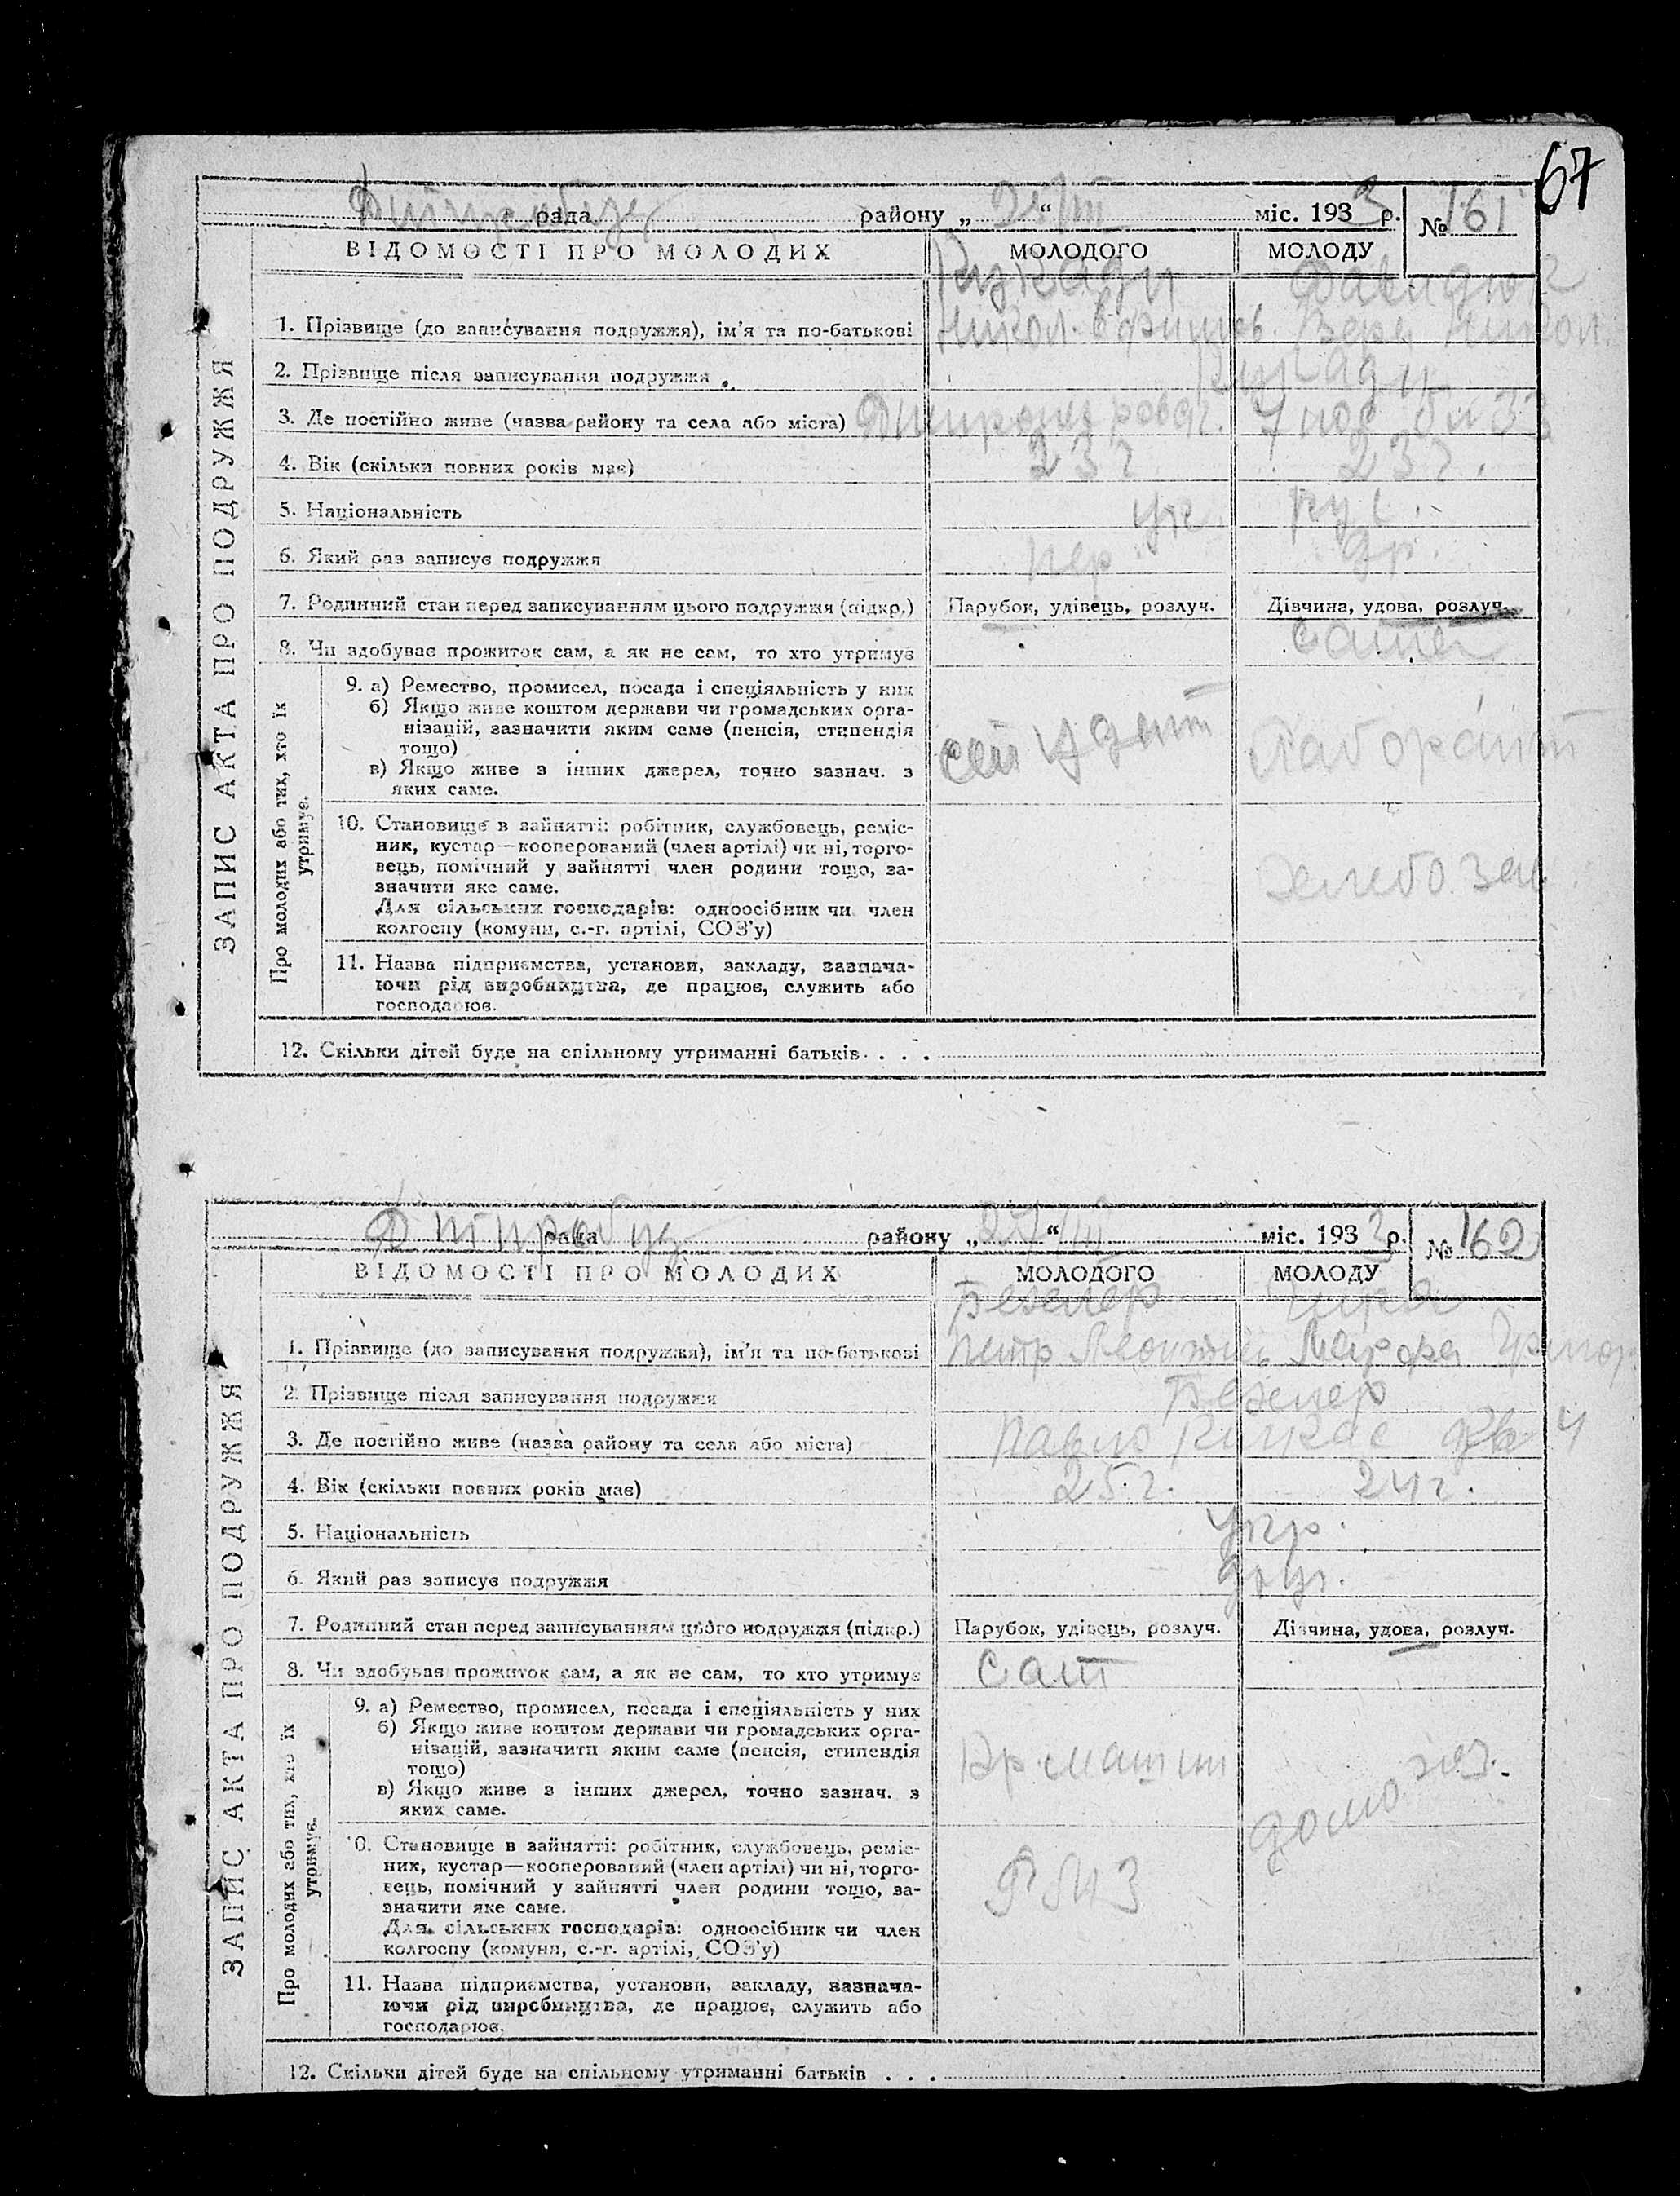 67
рада району „ “ міс. 1933 р. № 161
ВІДОМОСТІ ПРО МОЛОДИХ МОЛОДОГО МОЛОДУ
1. Прізвище (до записування подружжя), ім'я та по-батькові Никол. Вера Никол.
2. Прізвище після записування подружжя
3. Де постійно живе (назва району та села або міста)
4. Вік (скільки повних років має) 23 г 23 г.
5. Національність Ук. рус.
6. Який раз записує подружжя пер др.
7. Родинний стан перед записуванням цього подружжя (підкр.) Парубок, удівець, розлуч. Дівчина, удова, розлуч.
8. Чи здобуває прожиток сам, а як не сам, то хто утримує сама
9. а) Ремество, промисел, посада і спеціяльність у них
б) Якщо живе коштом держави чи громадських орга-
нізацій, зазначити яким саме (пенсія, стипендія
тощо) лаборант
в) Якщо живе з інших джерел, точно зазнач. з
яких саме.
10. Становище в зайнятті: робітник, службовець, реміс-
ник, кустар—кооперований (член артілі) чи ні, торго-
вець, помічний у зайнятті член родини тощо, за-
значити яке саме. хлебо зав.
Для сільських господарів: одноосібник чи член
колгоспу (комуни, с.-г. артілі, СОЗ'у)
11. Назва підприємства, установи, закладу, зазнача-
ючи рід виробництва, де працює, служить або
господарює.
12. Скільки дітей буде на спільному утриманні батьків . . .
ЗАПИС АКТА ПРО ПОДРУЖЖЯ
Про молодих або тих, хто їх
утримує.
рада району „27/III“ міс. 1933 р. № 162
ВІДОМОСТІ ПРО МОЛОДИХ МОЛОДОГО МОЛОДУ
1. Прізвище (до записування подружжя), ім'я та по-батькові Петр
2. Прізвище після записування подружжя
3. Де постійно живе (назва району та села або міста) Павло Кичкас
4. Вік (скільки повних років має) 25 г. 24 г.
5. Національність Укр.
6. Який раз записує подружжя
7. Родинний стан перед записуванням цього подружжя (підкр.) Парубок, удівець, розлуч. Дівчина, удова, розлуч.
8. Чи здобуває прожиток сам, а як не сам, то хто утримує сам
9. а) Ремество, промисел, посада і спеціяльність у них
б) Якщо живе коштом держави чи громадських орга-
нізацій, зазначити яким саме (пенсія, стипендія
тощо) домо хоз.
в) Якщо живе з інших джерел, точно зазнач. з
яких саме.
10. Становище в зайнятті: робітник, службовець, реміс-
ник, кустар—кооперований (член артілі) чи ні, торго-
вець, помічний у зайнятті член родини тощо, за-
значити яке саме.
Для сільських господарів: одноосібник чи член
колгоспу (комуни, с.-г. артілі, СОЗ'у)
11. Назва підприємства, установи, закладу, зазнача-
ючи рід виробництва, де працює, служить або
господарює.
12. Скільки дітей буде на спільному утриманні батьків . . .
ЗАПИС АКТА ПРО ПОДРУЖЖЯ
Про молодих або тих, хто їх
утримує.